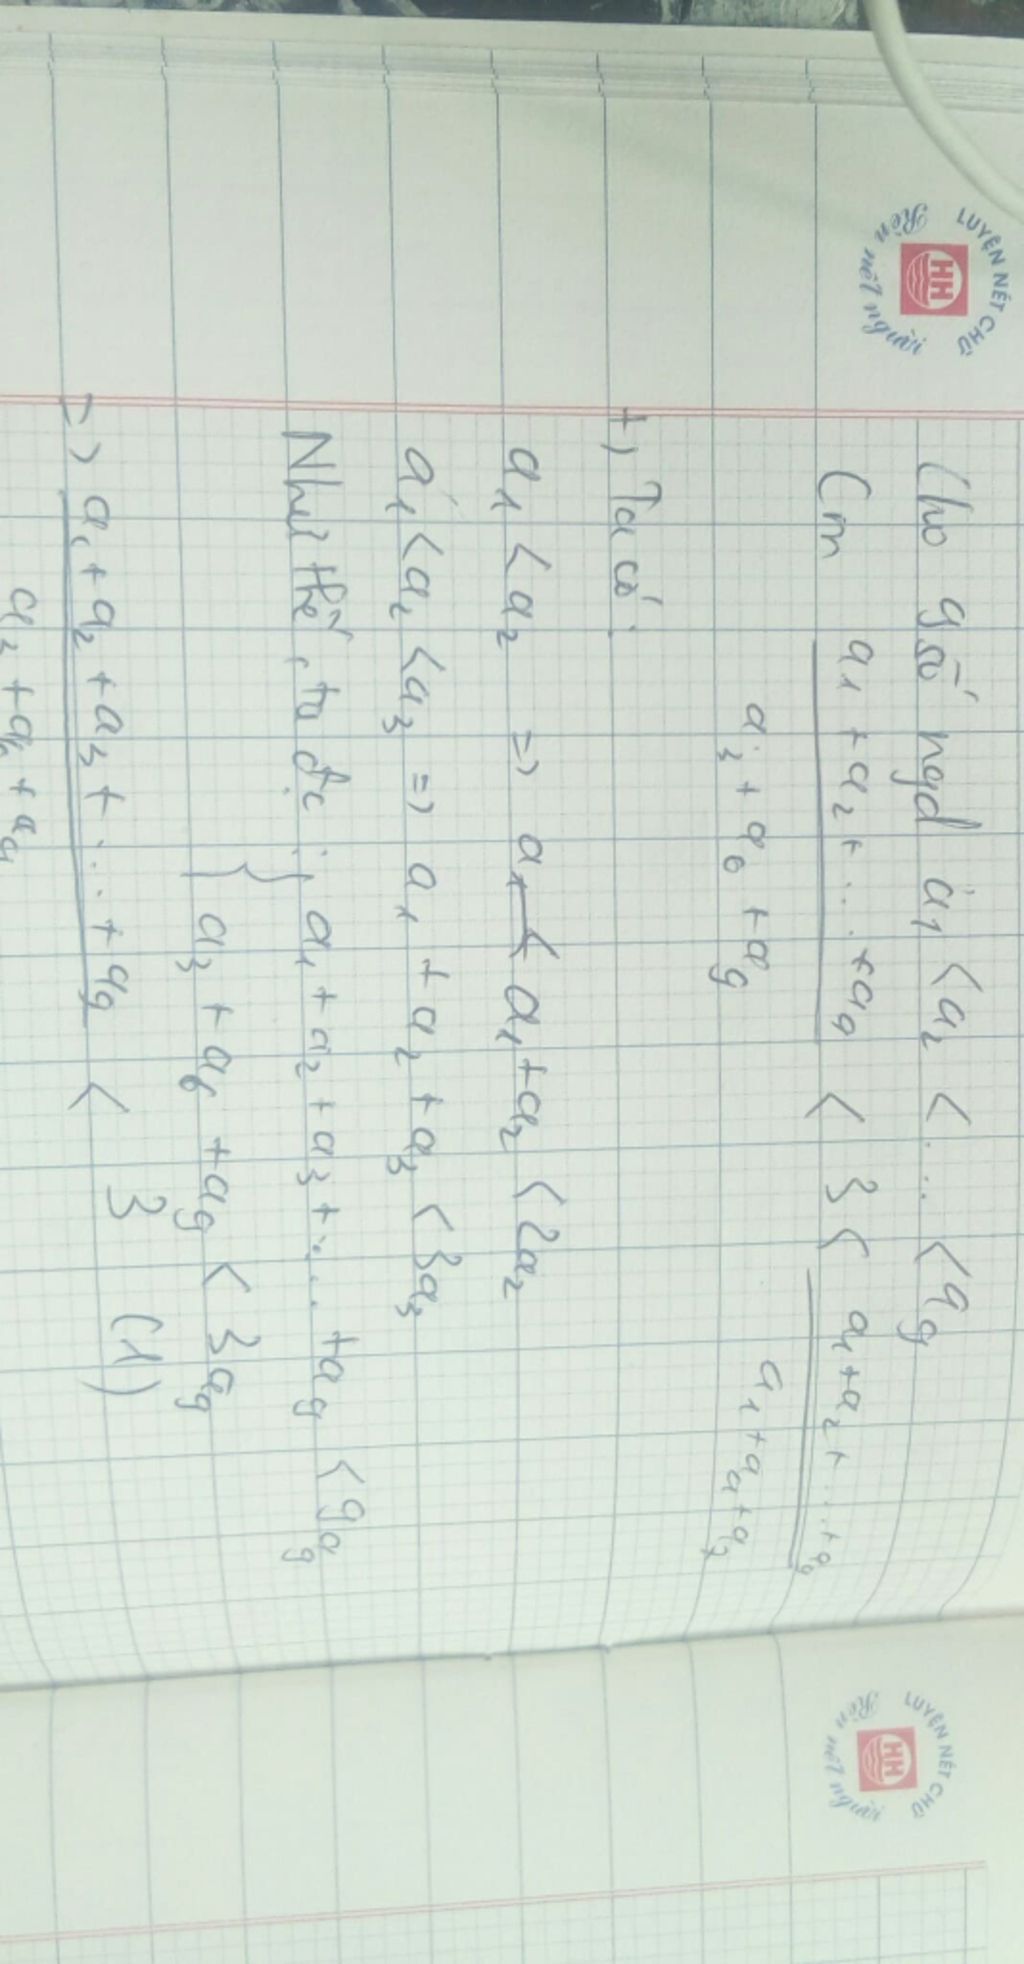 LUYỆN NÉT CHỮ
Rèn nết người
HH
Cho 9 số ngd a₁ < a₂ < ... < a₉
Cm a₁ + a₂ + ... + a₉ < 3 < a₁ + a₂ + ... + a₉
a₃ + a₆ + a₉ a₁ + a₄ + a₇
+) Ta có:
a₁ < a₂ => a₁ + a₂ < 2a₂
a₁ < a₂ < a₃ => a₁ + a₂ + a₃ < 3a₃
Như thế, ta đc: { a₁ + a₂ + a₃ + ... + a₉ < 9a₉
a₃ + a₆ + a₉ < 3a₉
=> a₁ + a₂ + a₃ + ... + a₉ < 3 (1)
a₃ + a₆ + a₉
LUYỆN NÉT CHỮ
Rèn nết người
HH